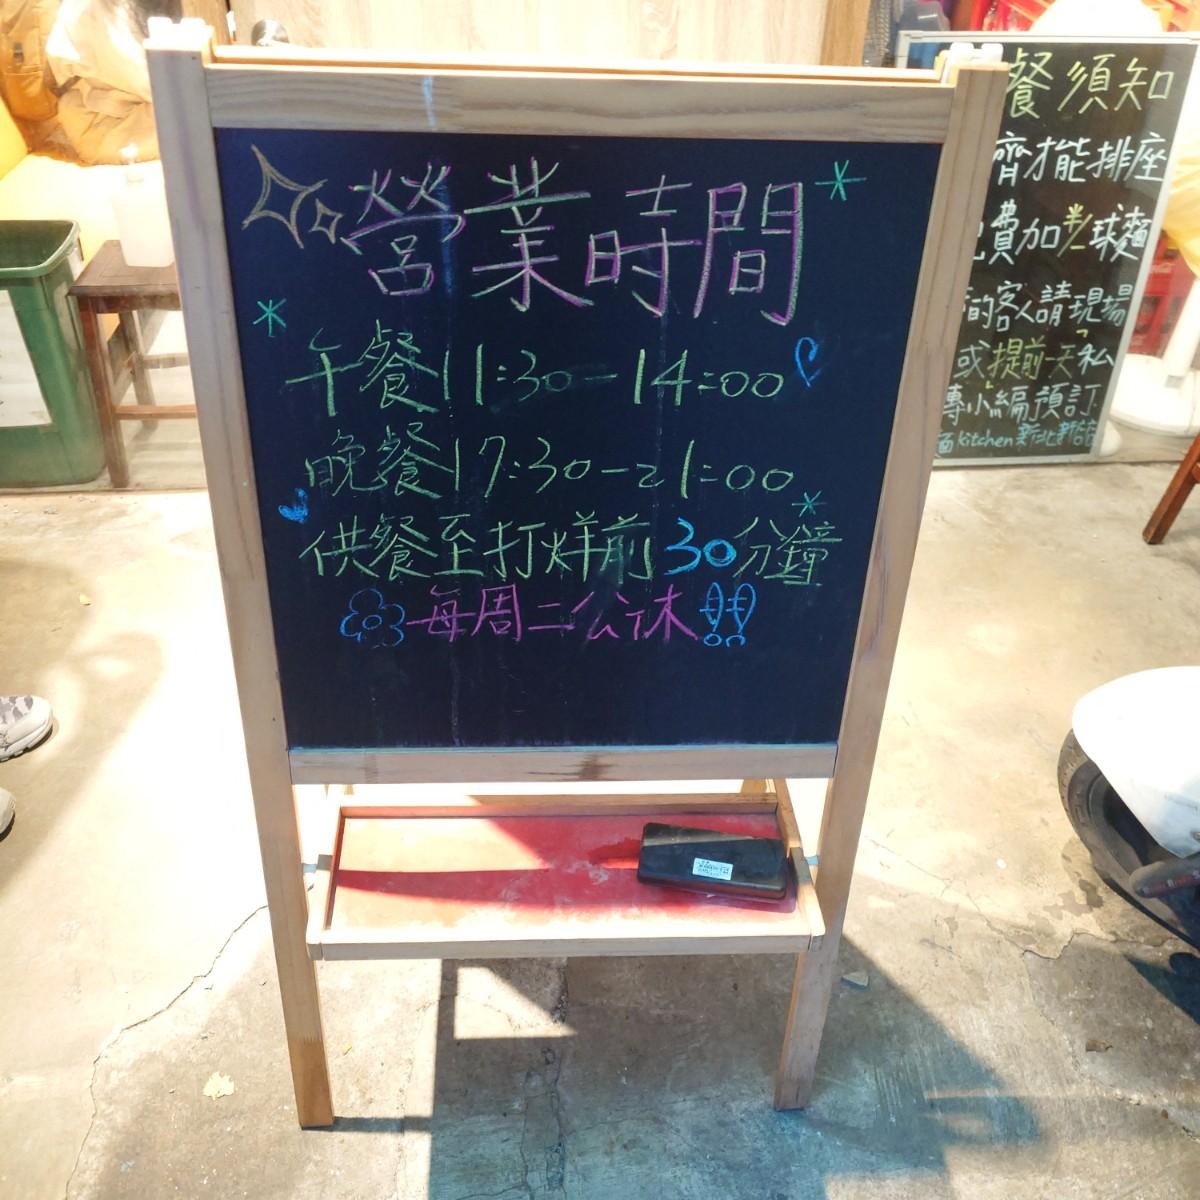 營業時間
午餐11:30-14:00
晚餐17:30-21:00
供餐至打烊前30分鐘
每周二公休!!
餐須知
齊才能排座
費加半球麵
的客人請現場
或提前一天私
專小編預訂
Kitchen新北新店